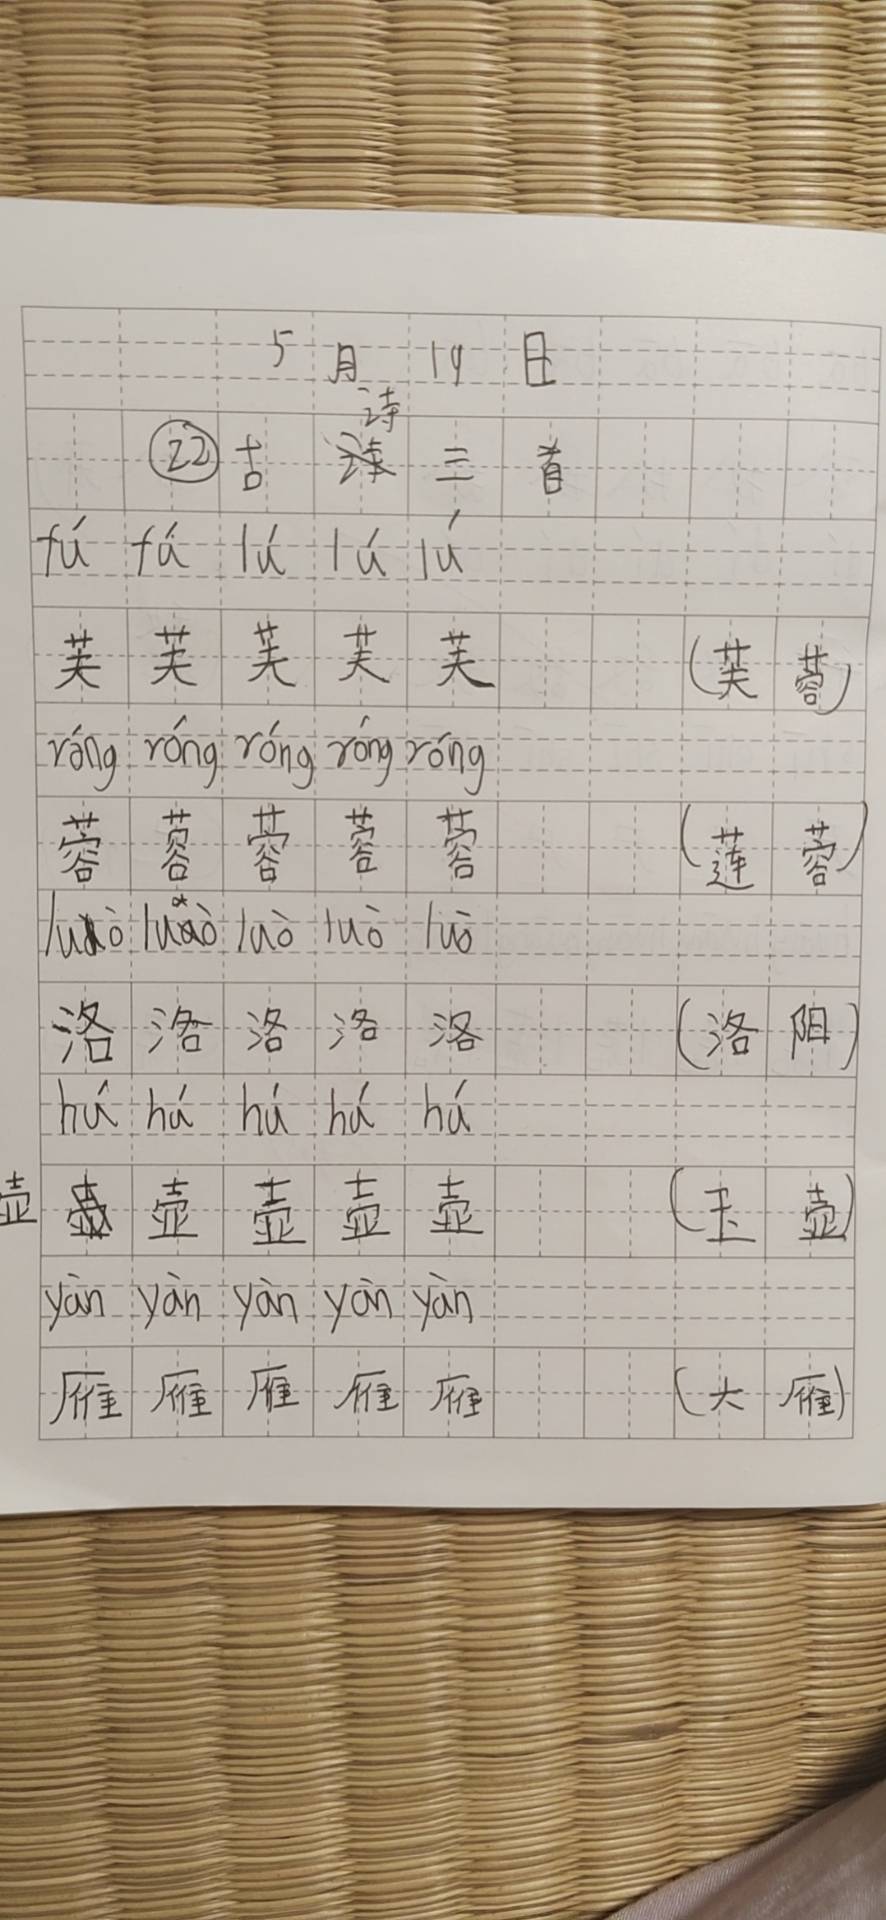 5月19日
诗
22 古诗三首
fú fú lú lú lú
芙芙芙芙芙(芙蓉)
róng róng róng róng róng
蓉蓉蓉蓉蓉(莲蓉)
luò luò luò luò luò
洛洛洛洛洛(洛阳)
hú hú hú hú hú
壶 壶壶壶壶(玉壶)
yàn yàn yàn yàn yàn
雁雁雁雁雁(大雁)